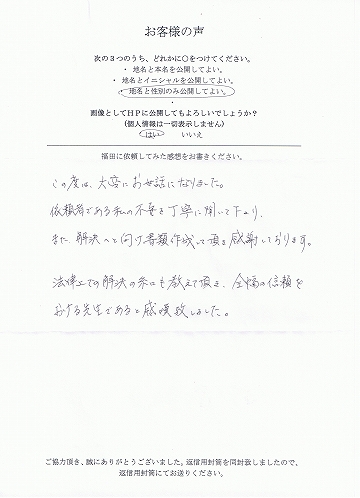 お客様の声
次の３つのうち、どれかに○をつけてください。
・ 地名と本名を公開してよい。
・ 地名とイニシャルを公開してよい。
・ 地名と性別のみ公開してよい。
・
画像としてＨＰに公開してもよろしいでしょうか？
（個人情報は一切表示しません）
はい　いいえ
福田に依頼してみた感想をお書きください。
この度は、大変にお世話になりました。
依頼者である私の不安を丁寧に聞いて下さり、
また、解決へと向け書類作成して頂き感謝しております。
法律上での解決の糸口も教えて頂き、全幅の信頼を
おける先生であると感嘆致しました。
ご協力頂き、誠にありがとうございました。返信用封筒を同封致しましたので、
返信用封筒にてお送りください。